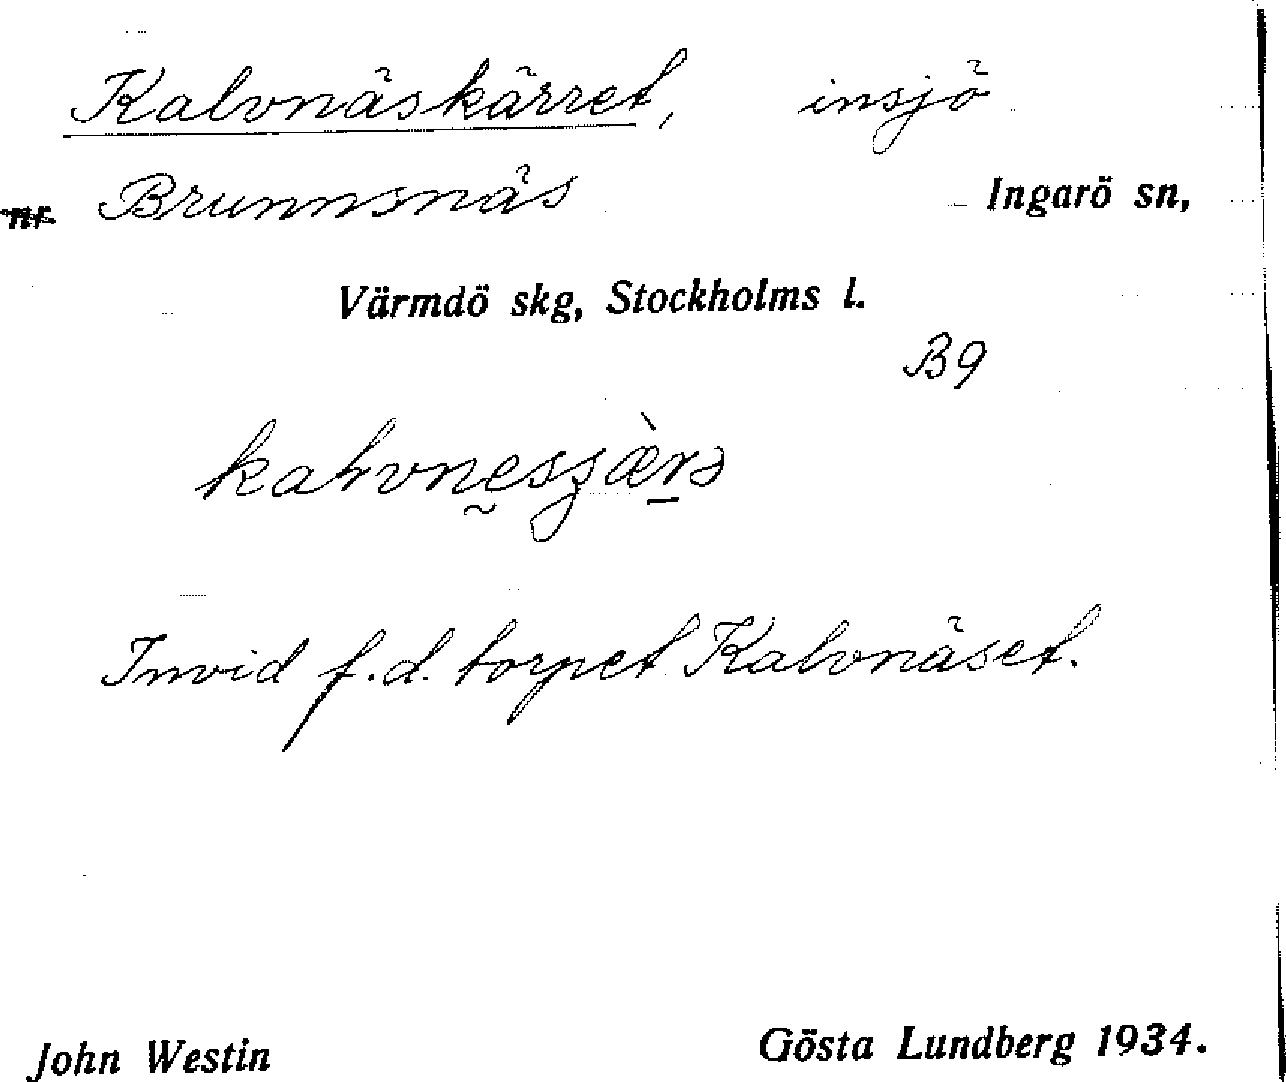 Kalvnäskärret, insjö
nr Brunnsnäs Ingarö sn,
Värmdö skg, Stockholms l.
B9
Invid f.d. torpet Kalvnäset.
John Westin Gösta Lundberg 1934.